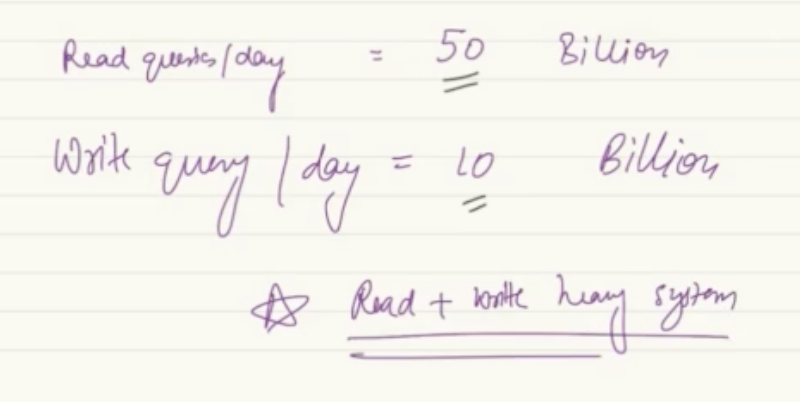 Read queries/day = 50 Billion
Write query / day = 10 Billion
☆ Read + write heavy system